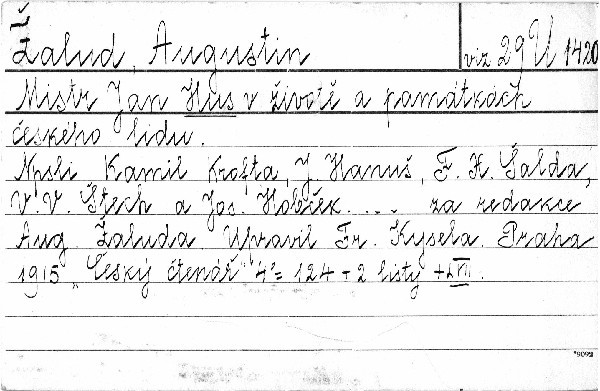 Žalud, Augustin
viz 29 U 1420
Mistr Jan Hus v životě a památkách
českého lidu.
Npsli Kamil Krofta, J. Hanuš, F. X. Šalda,
V. V. Štech a Jos. Hobzek.... za redakce
Aug. Žaluda. Upravil Fr. Kysela. Praha
1915 „Český čtenář" 4°= 124 + 2 listy + VII.
*9092